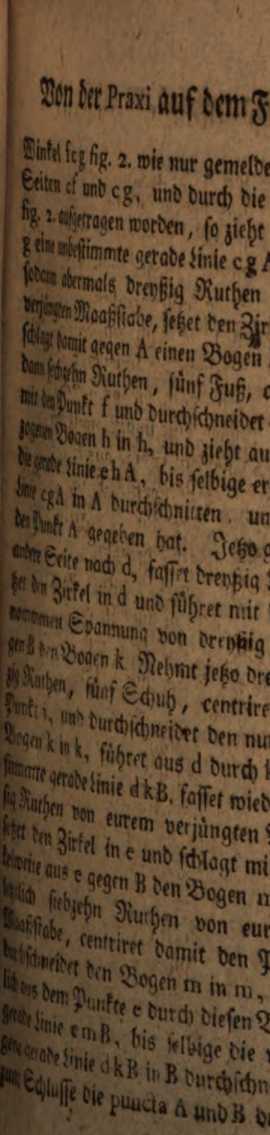 Von der Praxi auf dem F
Winkel fcg fig. 2. wie nur gemelde
Seiten cf und cg, und durch die
fig. 2. aufgetragen worden, so zieht
g eine unbestimmte gerade Linie c g A
sodann abermals dreyßig Ruthen
verjüngten Maaßstabe, setzet den Zir
schlagt damit gegen A einen Bogen
dann sechzehn Ruthen, fünf Fuß, c
mit den Punkt f und durchschneidet
zogenen Bogen h in h, und zieht au
die gerade Linie e h A, bis selbige er
Linie c g A in A durchschnitten, un
den Punkt A gegeben hat. Jetzo g
andere Seite nach d, fasset dreyßig
zet den Zirkel in d und führet mit
nommenen Spannung von dreyßig
gen B den Bogen k. Nehmt jetzo dre
zig Ruthen, fünf Schuh, centrire
Punkt i, und durchschneidet den nu
Bogen k in k, führet aus d durch k
stimmte gerade Linie d k B, fasset wied
ßig Ruthen von eurem verjüngten
setzt den Zirkel in e und schlagt mi
aus e gegen B den Bogen m
siebzehn Ruthen von eur
Maaßstabe, centriret damit den P
durchschneidet den Bogen m in m,
aus dem Punkte e durch diesen
gerade Linie e m B, bis selbige die
gerade Linie d k B in B durchschn
zum Schlusse die puncta A und B